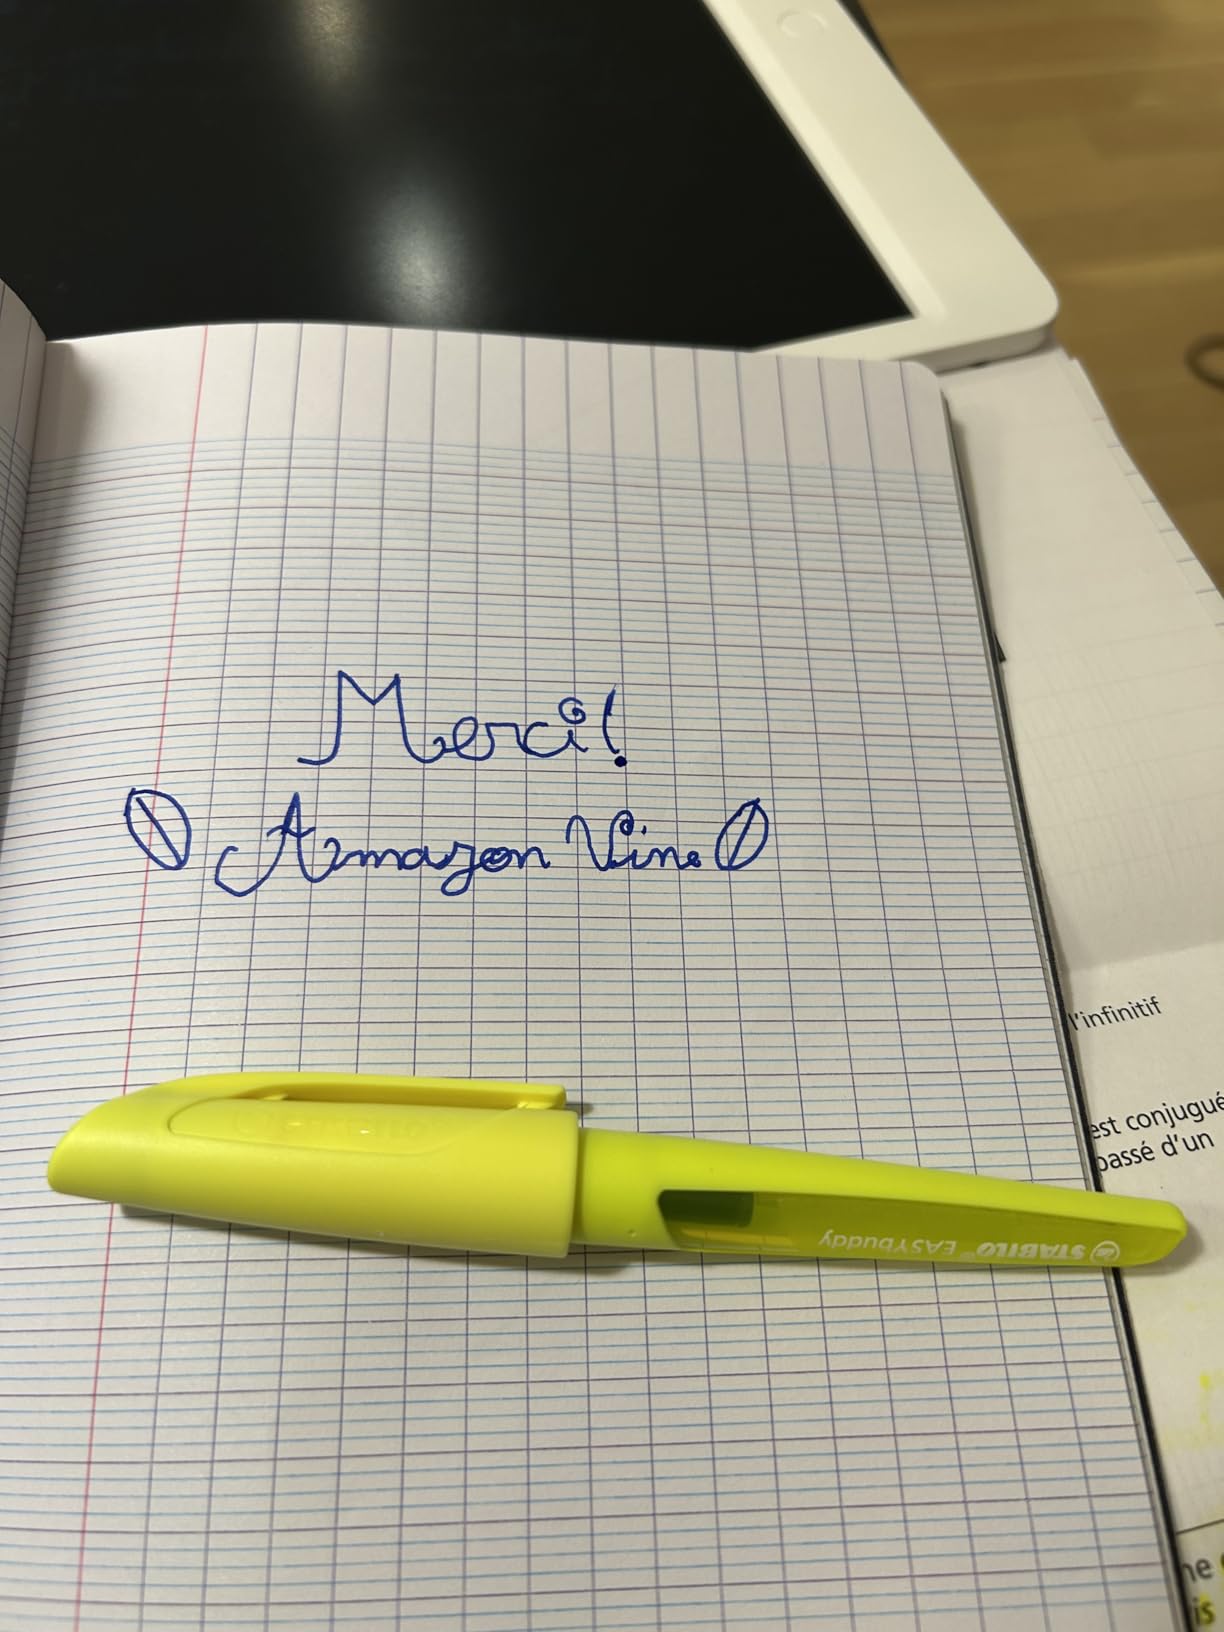 Merci!
Amazon Vine
l'infinitif
est conjugué
passé d'un
STABILO® EASYbuddy
is